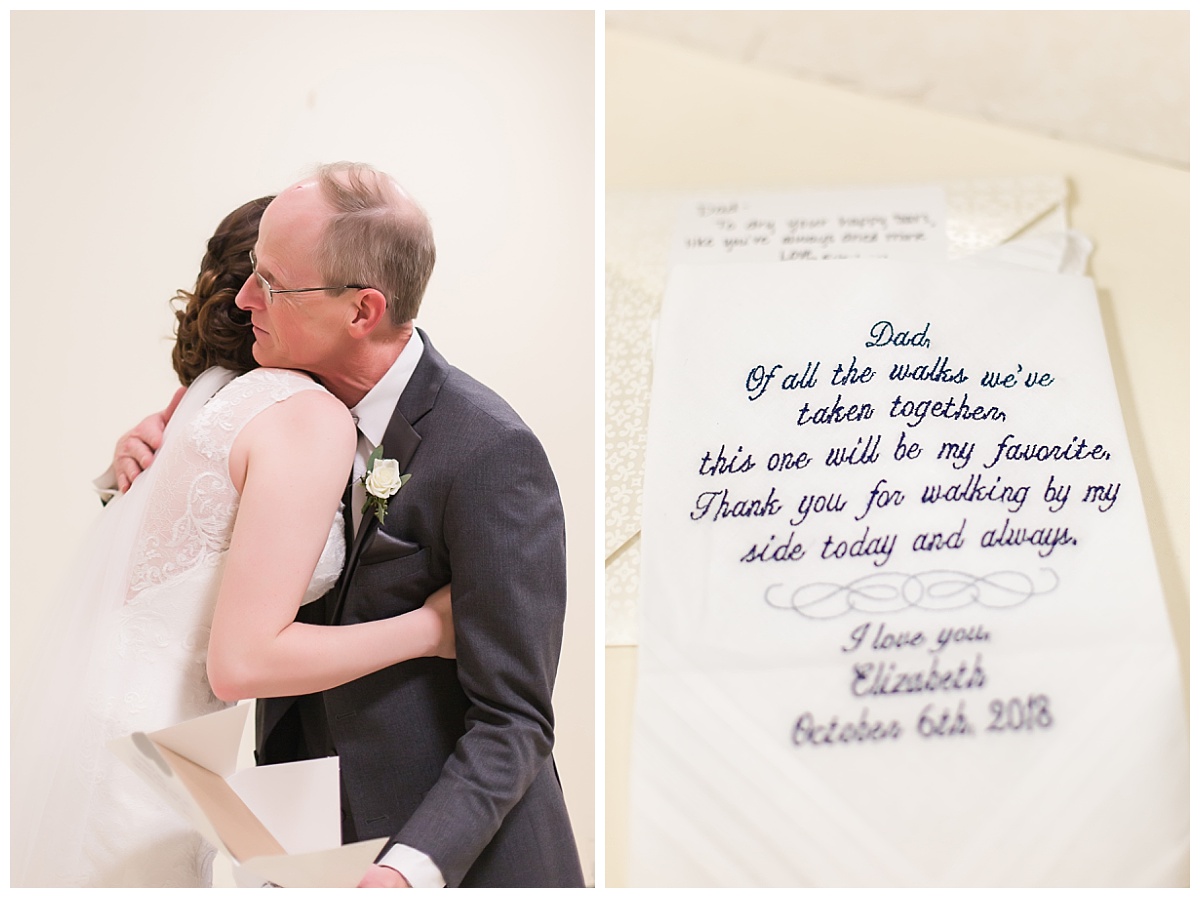 Dad-
To dry your happy tears,
like you've always dried mine
Love,
Dad,
Of all the walks we've
taken together,
this one will be my favorite.
Thank you for walking by my
side today and always.
I love you,
Elizabeth
October 6th, 2018